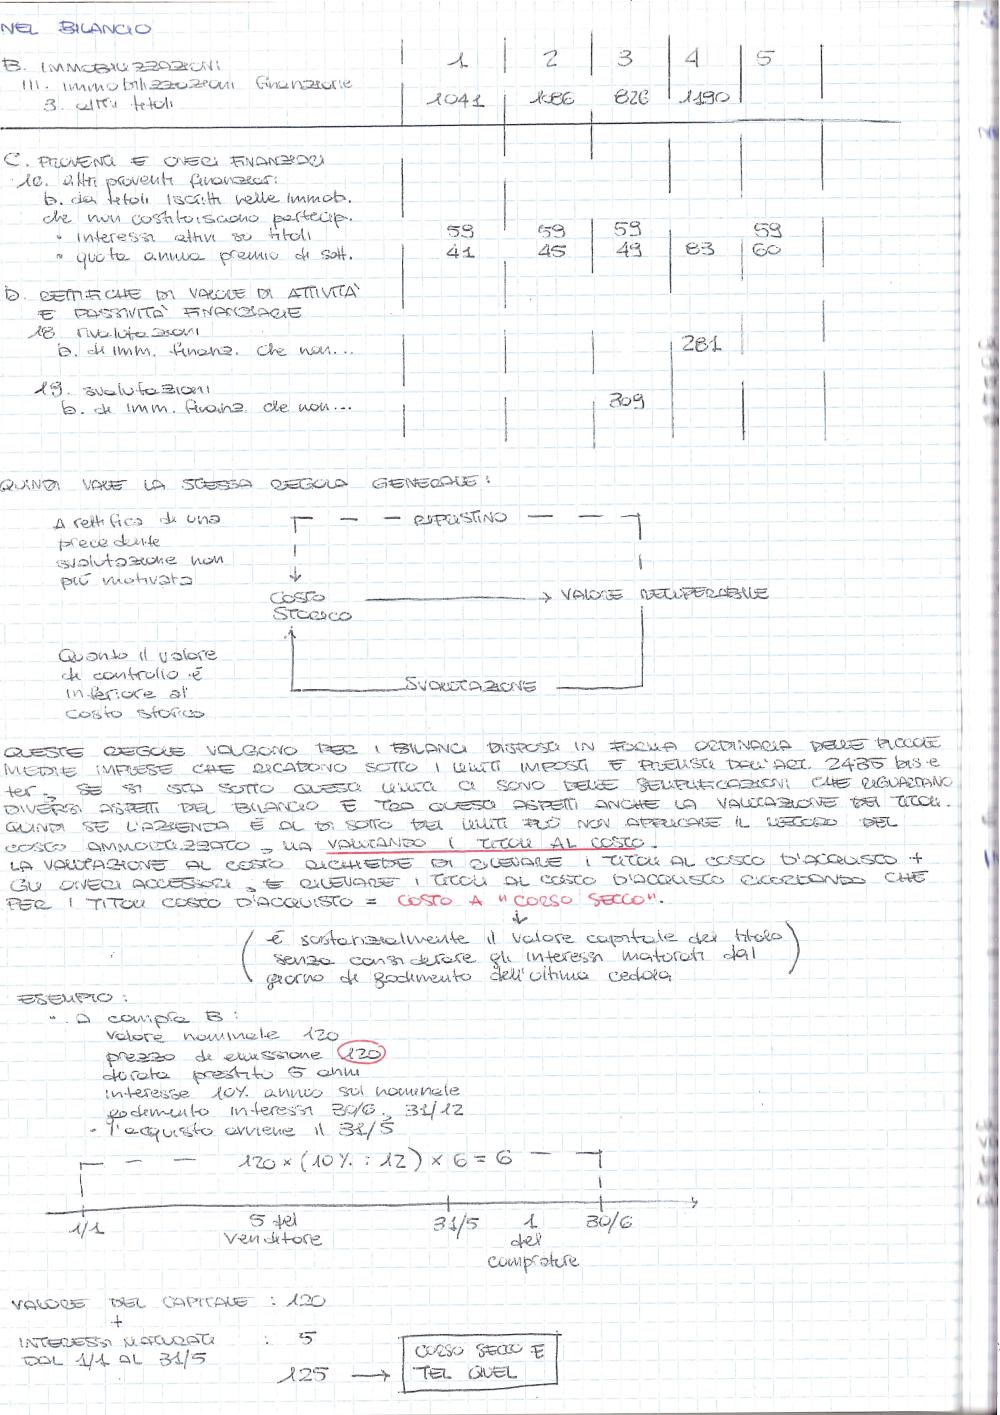 NEL BILANCIO
B. IMMOBILIZZAZIONI 1 2 3 4 5
III. immobilizzazioni finanziarie
3. altri titoli 1041 1086 826 1190
C. PROVENTI E ONERI FINANZIARI
16. altri proventi finanziari:
b. da titoli iscritti nelle immob.
che non costituiscono partecip.
• interessi attivi su titoli 59 59 59 59
• quota annua premio di sott. 41 45 49 83 60
D. RETTIFICHE DI VALORE DI ATTIVITÀ
E PASSIVITÀ FINANZIARIE
18. rivalutazioni
b. di imm. finanz. che non... 281
19. svalutazioni
b. di imm. finanz. che non... 309
QUINDI VALE LA STESSA REGOLA GENERALE:
A rettifica di una
precedente
svalutazione non
più motivata
RIPRISTINO
COSTO
STORICO
VALORE RECUPERABILE
Quanto il valore
di controllo è
inferiore al
costo storico
SVALUTAZIONE
QUESTE REGOLE VALGONO PER I BILANCI DISPOSTI IN FORMA ORDINARIA DELLE PICCOLE
MEDIE IMPRESE CHE RICADONO SOTTO I LIMITI IMPOSTI E PREVISTI DALL'ART. 2435 bis e
ter, SE SI STA SOTTO QUESTI LIMITI CI SONO DELLE SEMPLIFICAZIONI CHE RIGUARDANO
DIVERSI ASPETTI DEL BILANCIO E TRA QUESTI ASPETTI ANCHE LA VALUTAZIONE DEI TITOLI.
QUINDI SE L'AZIENDA È AL DI SOTTO DEI LIMITI PUÒ NON APPLICARE IL METODO DEL
COSTO AMMORTIZZATO, MA VALUTANDO I TITOLI AL COSTO.
LA VALUTAZIONE AL COSTO RICHIEDE DI RILEVARE I TITOLI AL COSTO D'ACQUISTO +
GLI ONERI ACCESSORI, E RILEVARE I TITOLI AL COSTO D'ACQUISTO RICORDANDO CHE
PER I TITOLI COSTO D'ACQUISTO = COSTO A "CORSO SECCO".
(è sostanzialmente il valore capitale del titolo
senza considerare gli interessi maturati dal
giorno di godimento dell'ultima cedola)
ESEMPIO:
• A compra B:
valore nominale 120
prezzo di emissione 120
durata prestito 5 anni
interesse 10% annuo sul nominale
godimento interessi 30/6, 31/12
• l'acquisto avviene il 31/5
120 × (10% : 12) × 6 = 6
1/1 5 del 31/5 1 30/6
venditore del
compratore
VALORE DEL CAPITALE : 120
+
INTERESSI MATURATI : 5
DAL 1/1 AL 31/5
125 → CORSO SECCO E
TEL QUEL